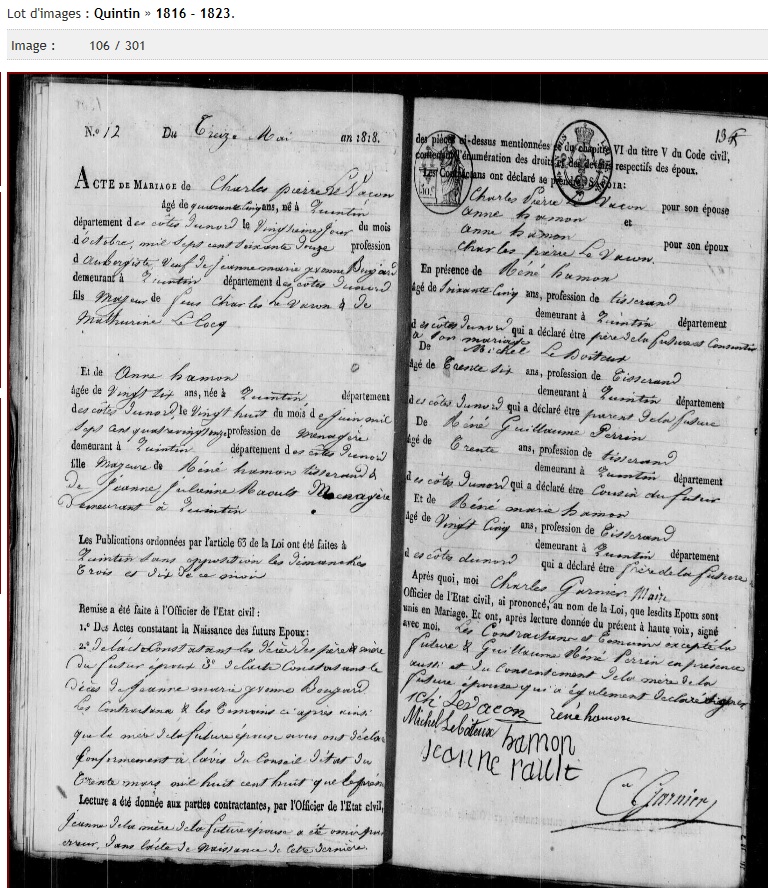 Lot d'images : Quintin » 1816 - 1823.
Image : 106 / 301
N.º 12 Du Treize Mai an 1818.
ACTE DE MARIAGE de Charles pierre Le Vacon
âgé de quarante cinq ans, né à Quintin
département des côtes du nord le Vingtieme jour du mois
d'octobre, mil sept cent soixante douze profession
d'aubergiste, veuf de jeanne marie yvonne
demeurant à Quintin département des côtes du nord
fils Majeur de feus Charles Le Vacon & de
Mathurine Le Cocq
Et de Anne hamon
âgée de Vingt six ans, née à Quintin département
des côtes du nord le Vingt huit du mois de juin mil
sept cens quatre vingt onze, profession de menagère
demeurant à Quintin département des côtes du nord
fille Majeure de Réné hamon tisserand &
de jeanne julienne Raoult Menagère
demeurant à Quintin
Les Publications ordonnées par l'article 63 de la Loi ont été faites à
Quintin sans opposition les dimanches
trois et dix de ce mois
Remise a été faite à l'Officier de l'Etat civil :
1.º Des Actes constatant la Naissance des futurs Epoux :
2º de l'acte Constatant les décès des père & mere
du futur époux 3º de l'acte Constatant le
décès de jeanne marie yvonne
Les Contractans & les temoins ci après ainsi
que la mère de la future épouse nous ont déclaré
Conformement à l'avis du Conseil d'état du
trente mars mil huit cent huit que le
Lecture a été donnée aux parties contractantes, par l'Officier de l'Etat civil,
jeanne de la mère de la future épouse a été omis par
erreur, dans l'acte de naissance de cette dernière.
des pièces ci-dessus mentionnées et du chapitre VI du titre V du Code civil,
contenant l'énumération des droits et des devoirs respectifs des époux.
Les Contractans ont déclaré se prendre, SAVOIR:
Charles Pierre Le Vacon pour son épouse
anne hamon
et
anne hamon pour son époux
Charles pierre Le Vacon.
En présence de Réné hamon
âgé de soixante Cinq ans, profession de tisserand
demeurant à Quintin département
des côtes du nord qui a déclaré être père de la future & Consentir
à son mariage
De Michel Le Boiteux
âgé de trente six ans, profession de tisserand
demeurant à Quintin département
des côtes du nord qui a déclaré être parent de la future
De Réné Guillaume Perrin
âgé de trente ans, profession de tisserand
demeurant à Quintin département
des côtes du nord qui a déclaré être Cousin du futur
Et de Réné marie hamon
âgé de Vingt Cinq ans, profession de tisserand
demeurant à Quintin département
des côtes du nord qui a déclaré être frère de la future
Après quoi, moi Charles Garnier Maire
Officier de l'Etat civil, ai prononcé, au nom de la Loi, que lesdits Epoux sont
unis en Mariage. Et ont, après lecture donnée du présent à haute voix, signé
avec moi. Les Contractans et temoins excepté la
future & Guillaume Réné Perrin en présence
aussi et du consentement de la mère de la
future épouse qui a également déclaré signer
Ch Levacon réné hamon
Michel Leboiteux hamon
jeanne rault
Garnier